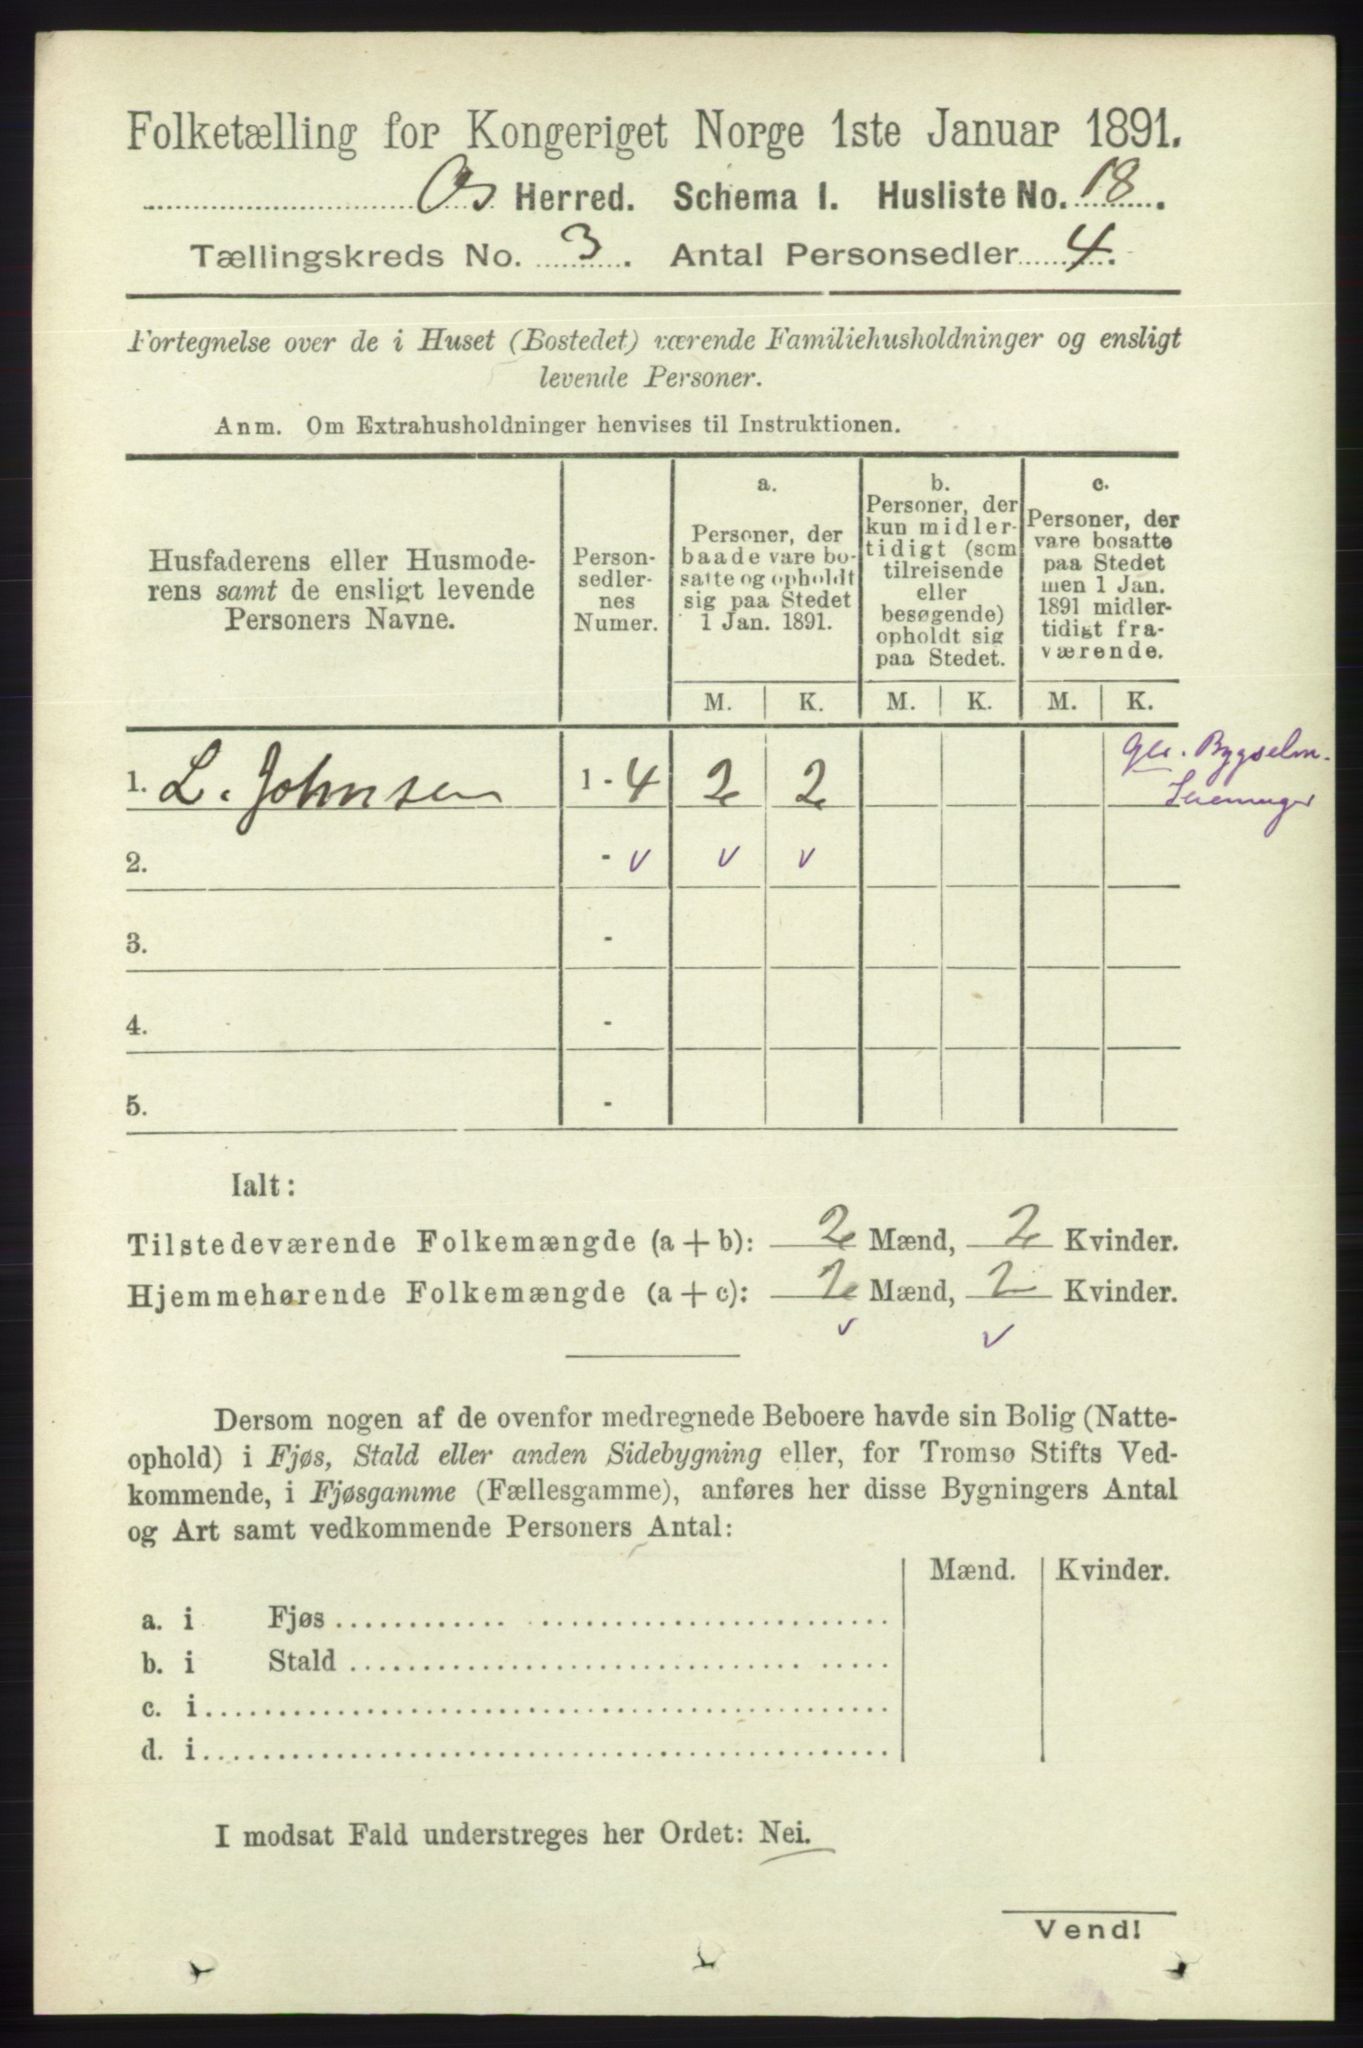 Folketælling for Kongeriget Norge 1ste Januar 1891.
Os Herred. Schema I. Husliste No. 18.
Tællingskreds No. 3. Antal Personsedler 4.
Fortegnelse over de i Huset (Bostedet) værende Familiehusholdninger og ensligt
levende Personer.
Anm. Om Extrahusholdninger henvises til Instruktionen.
Husfaderens eller Husmode-
rens samt de ensligt levende
Personers Navne.
Person-
sedler-
nes
Numer.
a.
Personer, der
baade vare bo-
satte og opholdt
sig paa Stedet
1 Jan. 1891.
b.
Personer, der
kun midler-
tidigt (som
tilreisende
eller
besøgende)
opholdt sig
paa Stedet.
c.
Personer, der
vare bosatte
paa Stedet
men 1 Jan.
1891 midler-
tidigt fra-
værende.
M. K. M. K. M. K.
Bygselm.
1. L. Johnsen 1 - 4 2 2
2. - v v v
3. -
4. -
5. -
Ialt:
Tilstedeværende Folkemængde (a + b): 2 Mænd, 2 Kvinder.
Hjemmehørende Folkemængde (a + c): 2 Mænd, 2 Kvinder.
v v
Dersom nogen af de ovenfor medregnede Beboere havde sin Bolig (Natte-
ophold) i Fjøs, Stald eller anden Sidebygning eller, for Tromsø Stifts Ved-
kommende, i Fjøsgamme (Fællesgamme), anføres her disse Bygningers Antal
og Art samt vedkommende Personers Antal:
Mænd. Kvinder.
a. i Fjøs
b. i Stald
c. i
d. i
I modsat Fald understreges her Ordet: Nei.
Vend!